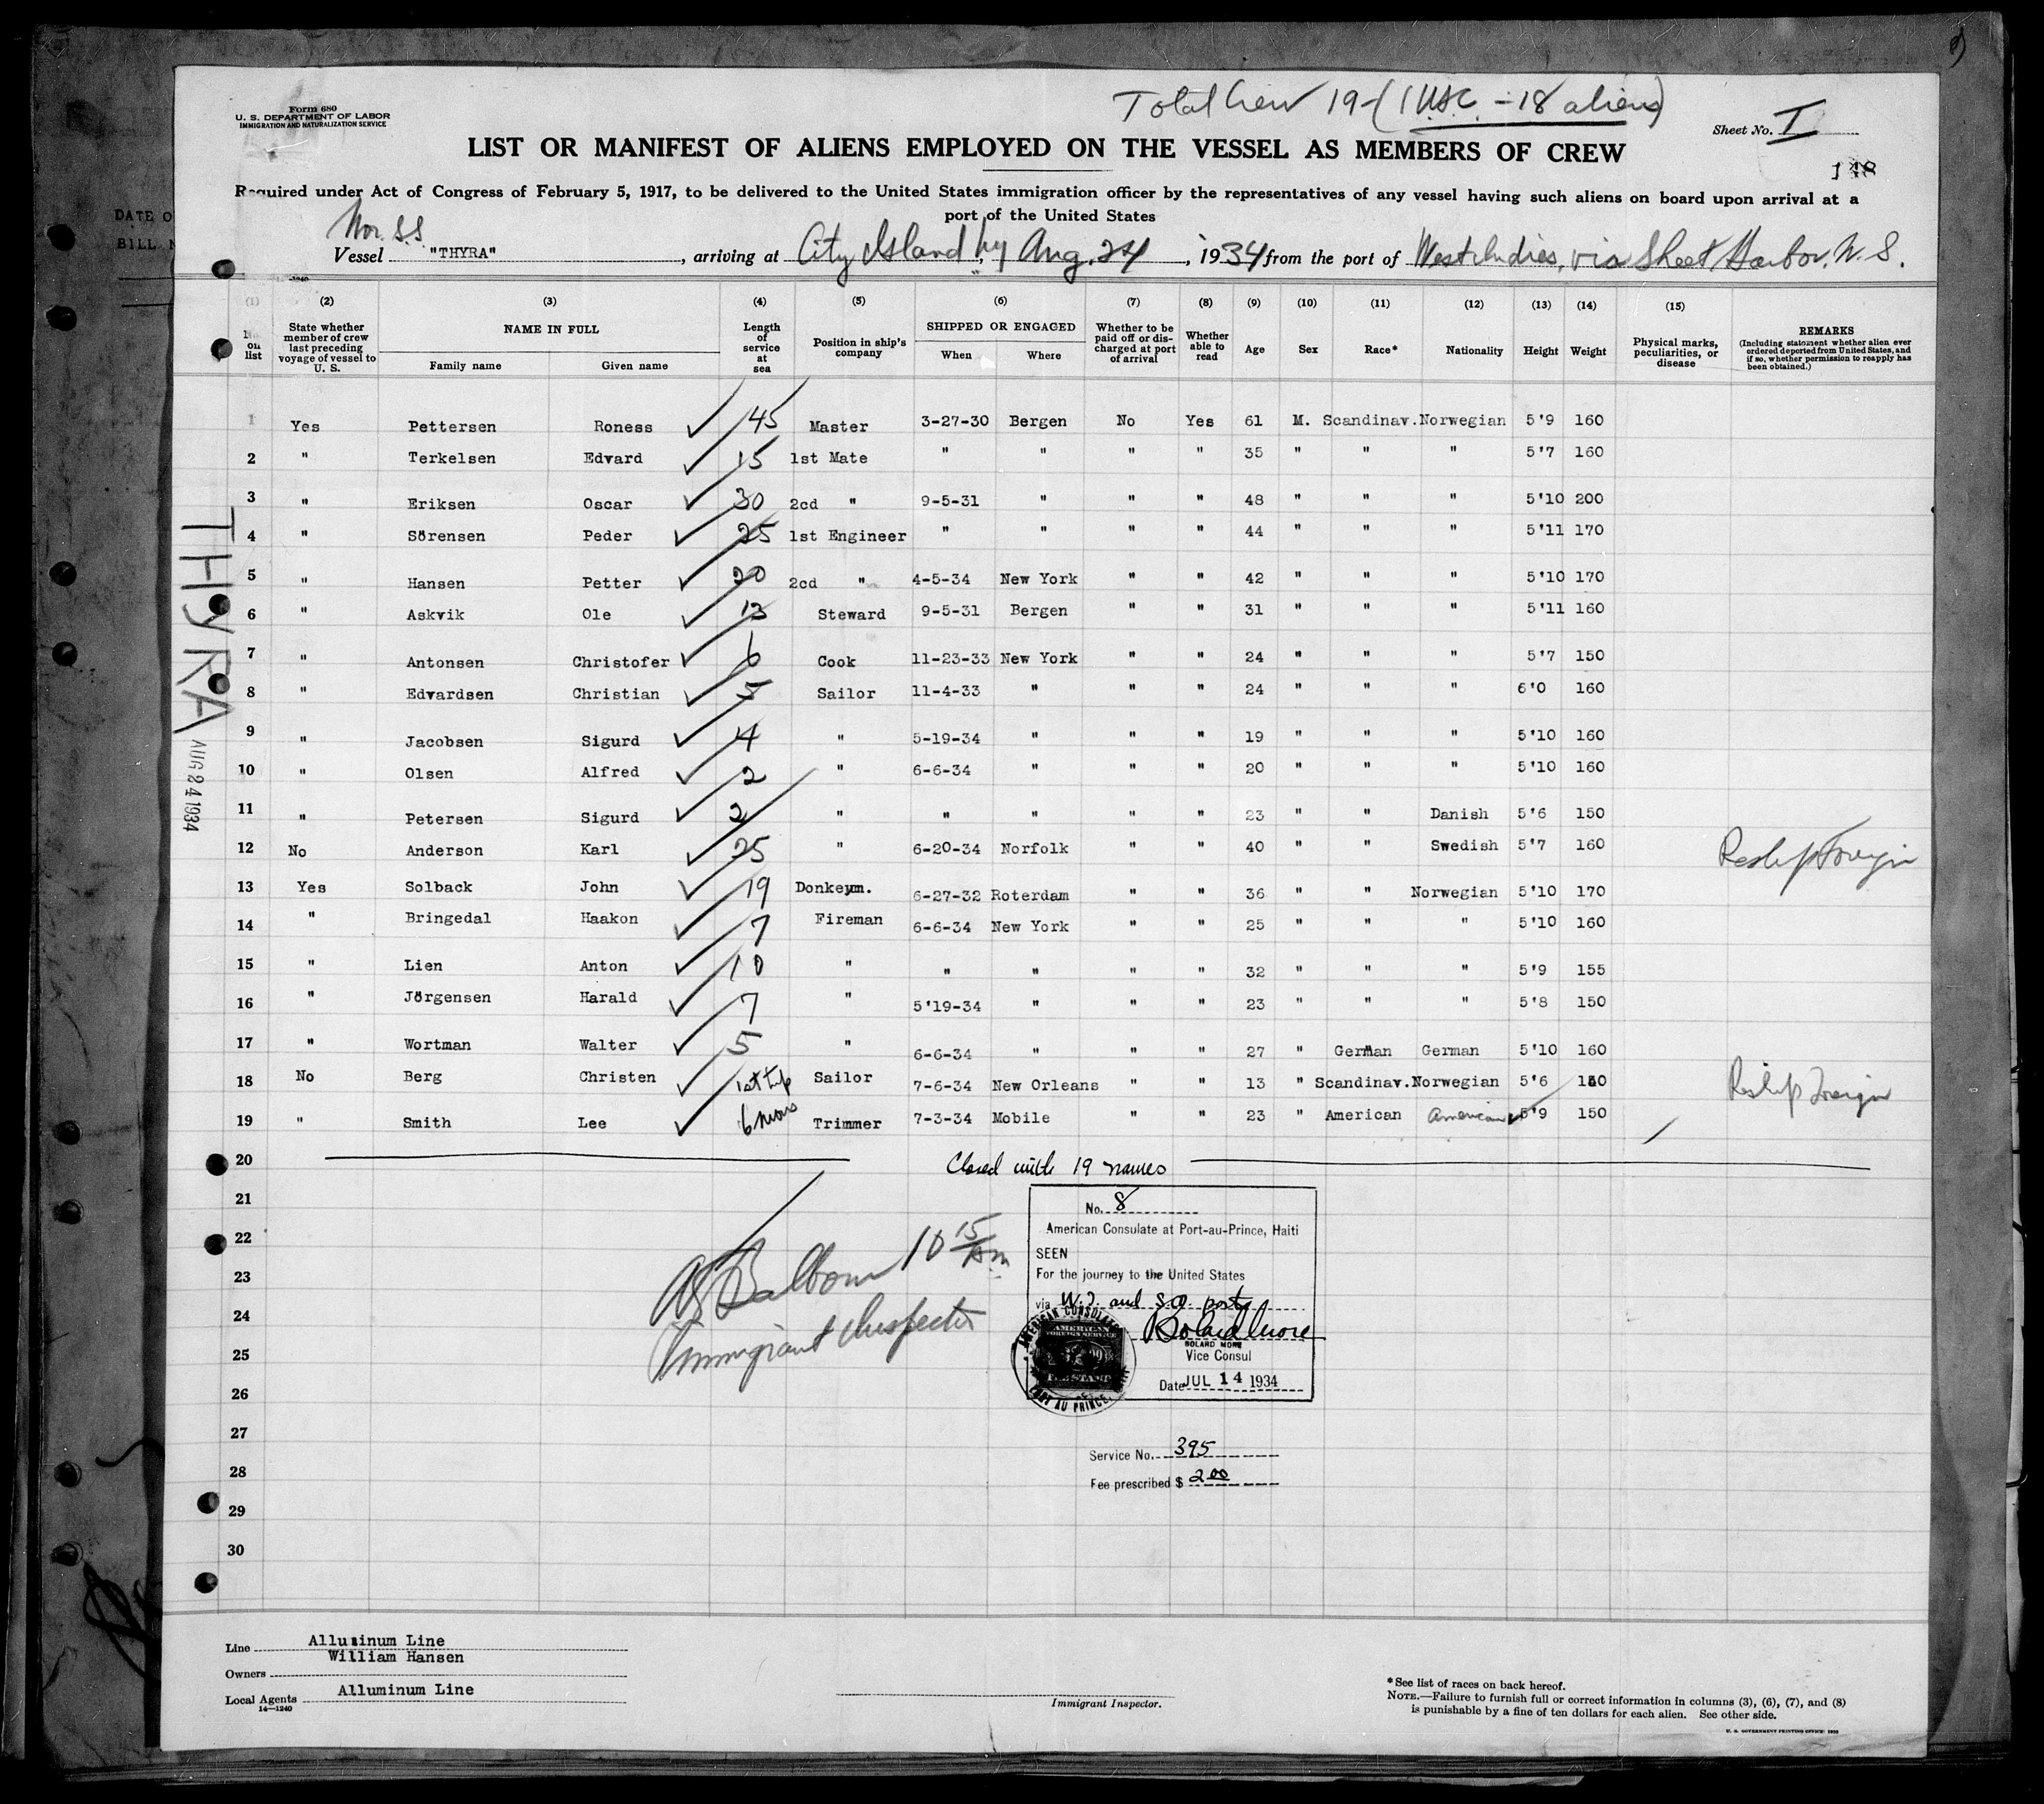 Total Crew 19-(1 U.S.C. - 18 aliens)
Form 680
U. S. DEPARTMENT OF LABOR
IMMIGRATION AND NATURALIZATION SERVICE
Sheet No. I
LIST OR MANIFEST OF ALIENS EMPLOYED ON THE VESSEL AS MEMBERS OF CREW
148
Required under Act of Congress of February 5, 1917, to be delivered to the United States immigration officer by the representatives of any vessel having such aliens on board upon arrival at a
port of the United States
Nor. S.S
Vessel "THYRA", arriving at City Island, Ny Aug. 24, 1934 from the port of West Indies, via Sheet Harbor, N. S.
DATE O
BILL N
(1) (2) (3) (4) (5) (6) (7) (8) (9) (10) (11) (12) (13) (14) (15)
No. on list State whether member of crew last preceding voyage of vessel to U. S. NAME IN FULL Family name Given name Length of service at sea Position in ship's company SHIPPED OR ENGAGED When Where Whether to be paid off or discharged at port of arrival Whether able to read Age Sex Race* Nationality Height Weight Physical marks, peculiarities, or disease REMARKS (Including statement whether alien ever ordered deported from United States, and if so, whether permission to reapply has been obtained.)
1 Yes Pettersen Roness 45 Master 3-27-30 Bergen No Yes 61 M. Scandinav. Norwegian 5'9 160
2 " Terkelsen Edvard 15 1st Mate " " " " 35 " " " 5'7 160
3 " Eriksen Oscar 30 2cd " 9-5-31 " " " 48 " " " 5'10 200
4 " Sörensen Peder 25 1st Engineer " " " " 44 " " " 5'11 170
5 " Hansen Petter 20 2cd " 4-5-34 New York " " 42 " " " 5'10 170
6 " Askvik Ole 13 Steward 9-5-31 Bergen " " 31 " " " 5'11 160
7 " Antonsen Christofer 6 Cook 11-23-33 New York " " 24 " " " 5'7 150
8 " Edvardsen Christian 5 Sailor 11-4-33 " " " 24 " " " 6'0 160
9 " Jacobsen Sigurd 4 " 5-19-34 " " " 19 " " " 5'10 160
10 " Olsen Alfred 2 " 6-6-34 " " " 20 " " " 5'10 160
11 " Petersen Sigurd 2 " " " " " 23 " " Danish 5'6 150
12 No Anderson Karl 25 " 6-20-34 Norfolk " " 40 " " Swedish 5'7 160 Reship Foreign
13 Yes Solback John 19 Donkeym. 6-27-32 Roterdam " " 36 " " Norwegian 5'10 170
14 " Bringedal Haakon 7 Fireman 6-6-34 New York " " 25 " " " 5'10 160
15 " Lien Anton 10 " " " " " 32 " " " 5'9 155
16 " Jörgensen Harald 7 " 5'19-34 " " " 23 " " " 5'8 150
17 " Wortman Walter 5 " 6-6-34 " " " 27 " German German 5'10 160
18 No Berg Christen 1st trip Sailor 7-6-34 New Orleans " " 13 " Scandinav. Norwegian 5'6 Reship Foreign
19 " Smith Lee 6 mons Trimmer 7-3-34 Mobile " " 23 " American American 5'9 150
20 Closed with 19 names
21
22
23
24
25
26
27
28
29
30
THYRA
AUG 24 1934
10 15 Am
Immigrant Inspector
No. 8
American Consulate at Port-au-Prince, Haiti
SEEN
For the journey to the United States
via W.I. and S.A. ports
Bolard More
BOLARD MORE
Vice Consul
Date JUL 14 1934
AMERICAN CONSULATE
AMERICAN
FOREIGN SERVICE
FEE STAMP
PORT AU PRINCE
Service No. 395
Fee prescribed $ 2.00
Line Alluminum Line
William Hansen
Owners
Local Agents Alluminum Line
14—1240
Immigrant Inspector.
*See list of races on back hereof.
NOTE.—Failure to furnish full or correct information in columns (3), (6), (7), and (8)
is punishable by a fine of ten dollars for each alien. See other side.
U. S. GOVERNMENT PRINTING OFFICE: 1933